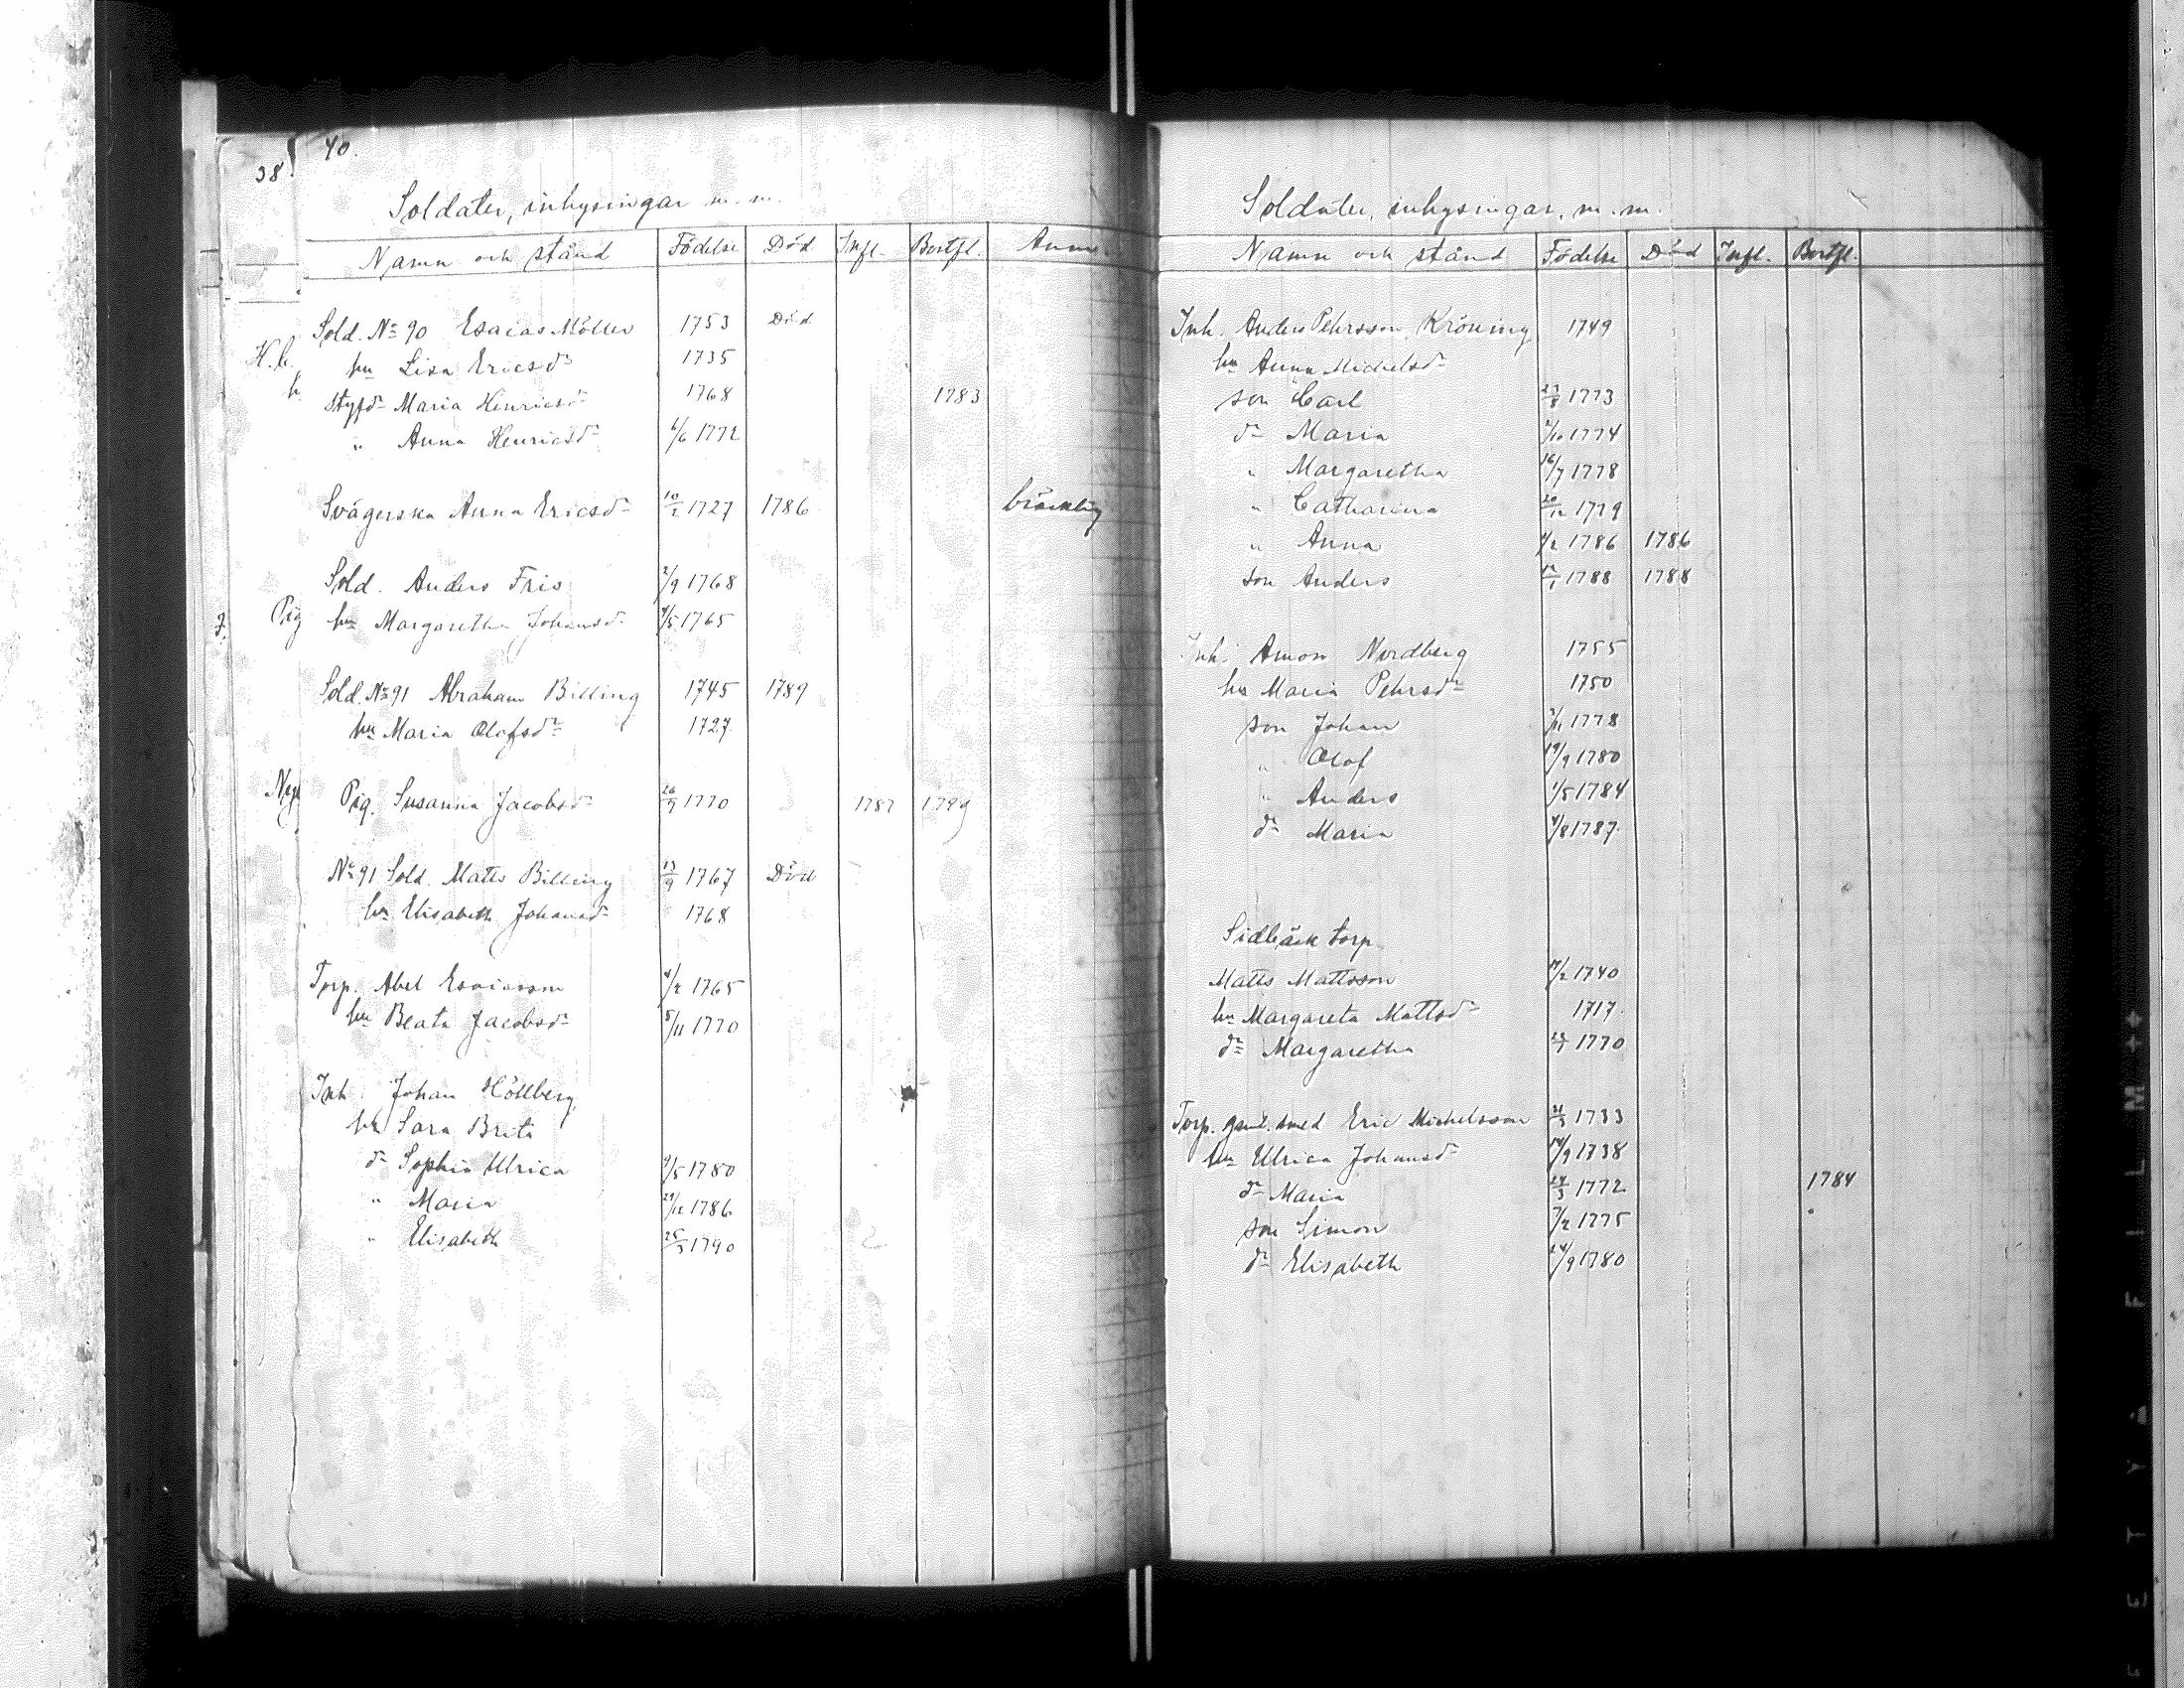 40.
38
Soldater, inhysingar m. m.
Namn och stånd Födelse Död Infl. Bortfl. Anm.
Sold. No 90 Esaias Möller 1753 Död
H. b. hu Lisa Ericsdr 1735
h. styfdr Maria Henricsdr 1768 1783
" Anna Henricsdr 6/6 1772
Svägerska Anna Ericsdr 10/2 1727 1786 bräcklig
Sold. Anders Fris 2/9 1768
Pig hu Margaretha Johansdr 4/5 1765
Sold. No 91 Abraham Billing 1745 1789
hu Maria Olofsdr 1727
Pig. Susanna Jacobsdr 26/9 1770 1787 1789
No 91 Sold. Matts Billing 13/9 1767 Död
hu Elisabeth Johansdr 1768
Torp. Abel Esaiasson 4/2 1765
hu Beata Jacobsdr 5/11 1770
Inh. Johan Höllberg
hu Sara Brita
dr Sophia Ulrica 4/5 1780
" Maria 29/12 1786
" Elisabeth 25/3 1790
Soldater, inhysingar, m. m.
Namn och stånd Födelse Död Infl. Bortfl.
Inh. Anders Pehrsson Kröning 1749
hu Anna Michelsdr
son Carl 23/8 1773
dr Maria 1774
" Margaretha 16/7 1778
" Catharina 20/12 1779
" Anna 1786 1786
son Anders 1788 1788
Inh. Amon Nordberg 1755
hu Maria Pehrsdr 1750
son Johan 3/11 1778
" Olof 19/9 1780
" Anders 1/5 1784
dr Maria 4/8 1787.
Sidbäck torp.
Matts Mattsson 1740
hu Margareta Mattsdr 1717.
dr Margaretha 1770
Torp. gml. smed Eric Michelsson 1733
hu Ulrica Johansdr 14/9 1738
dr Maria 24/3 1772 1784
son Simon 7/2 1775
dr Elisabeth 24/9 1780